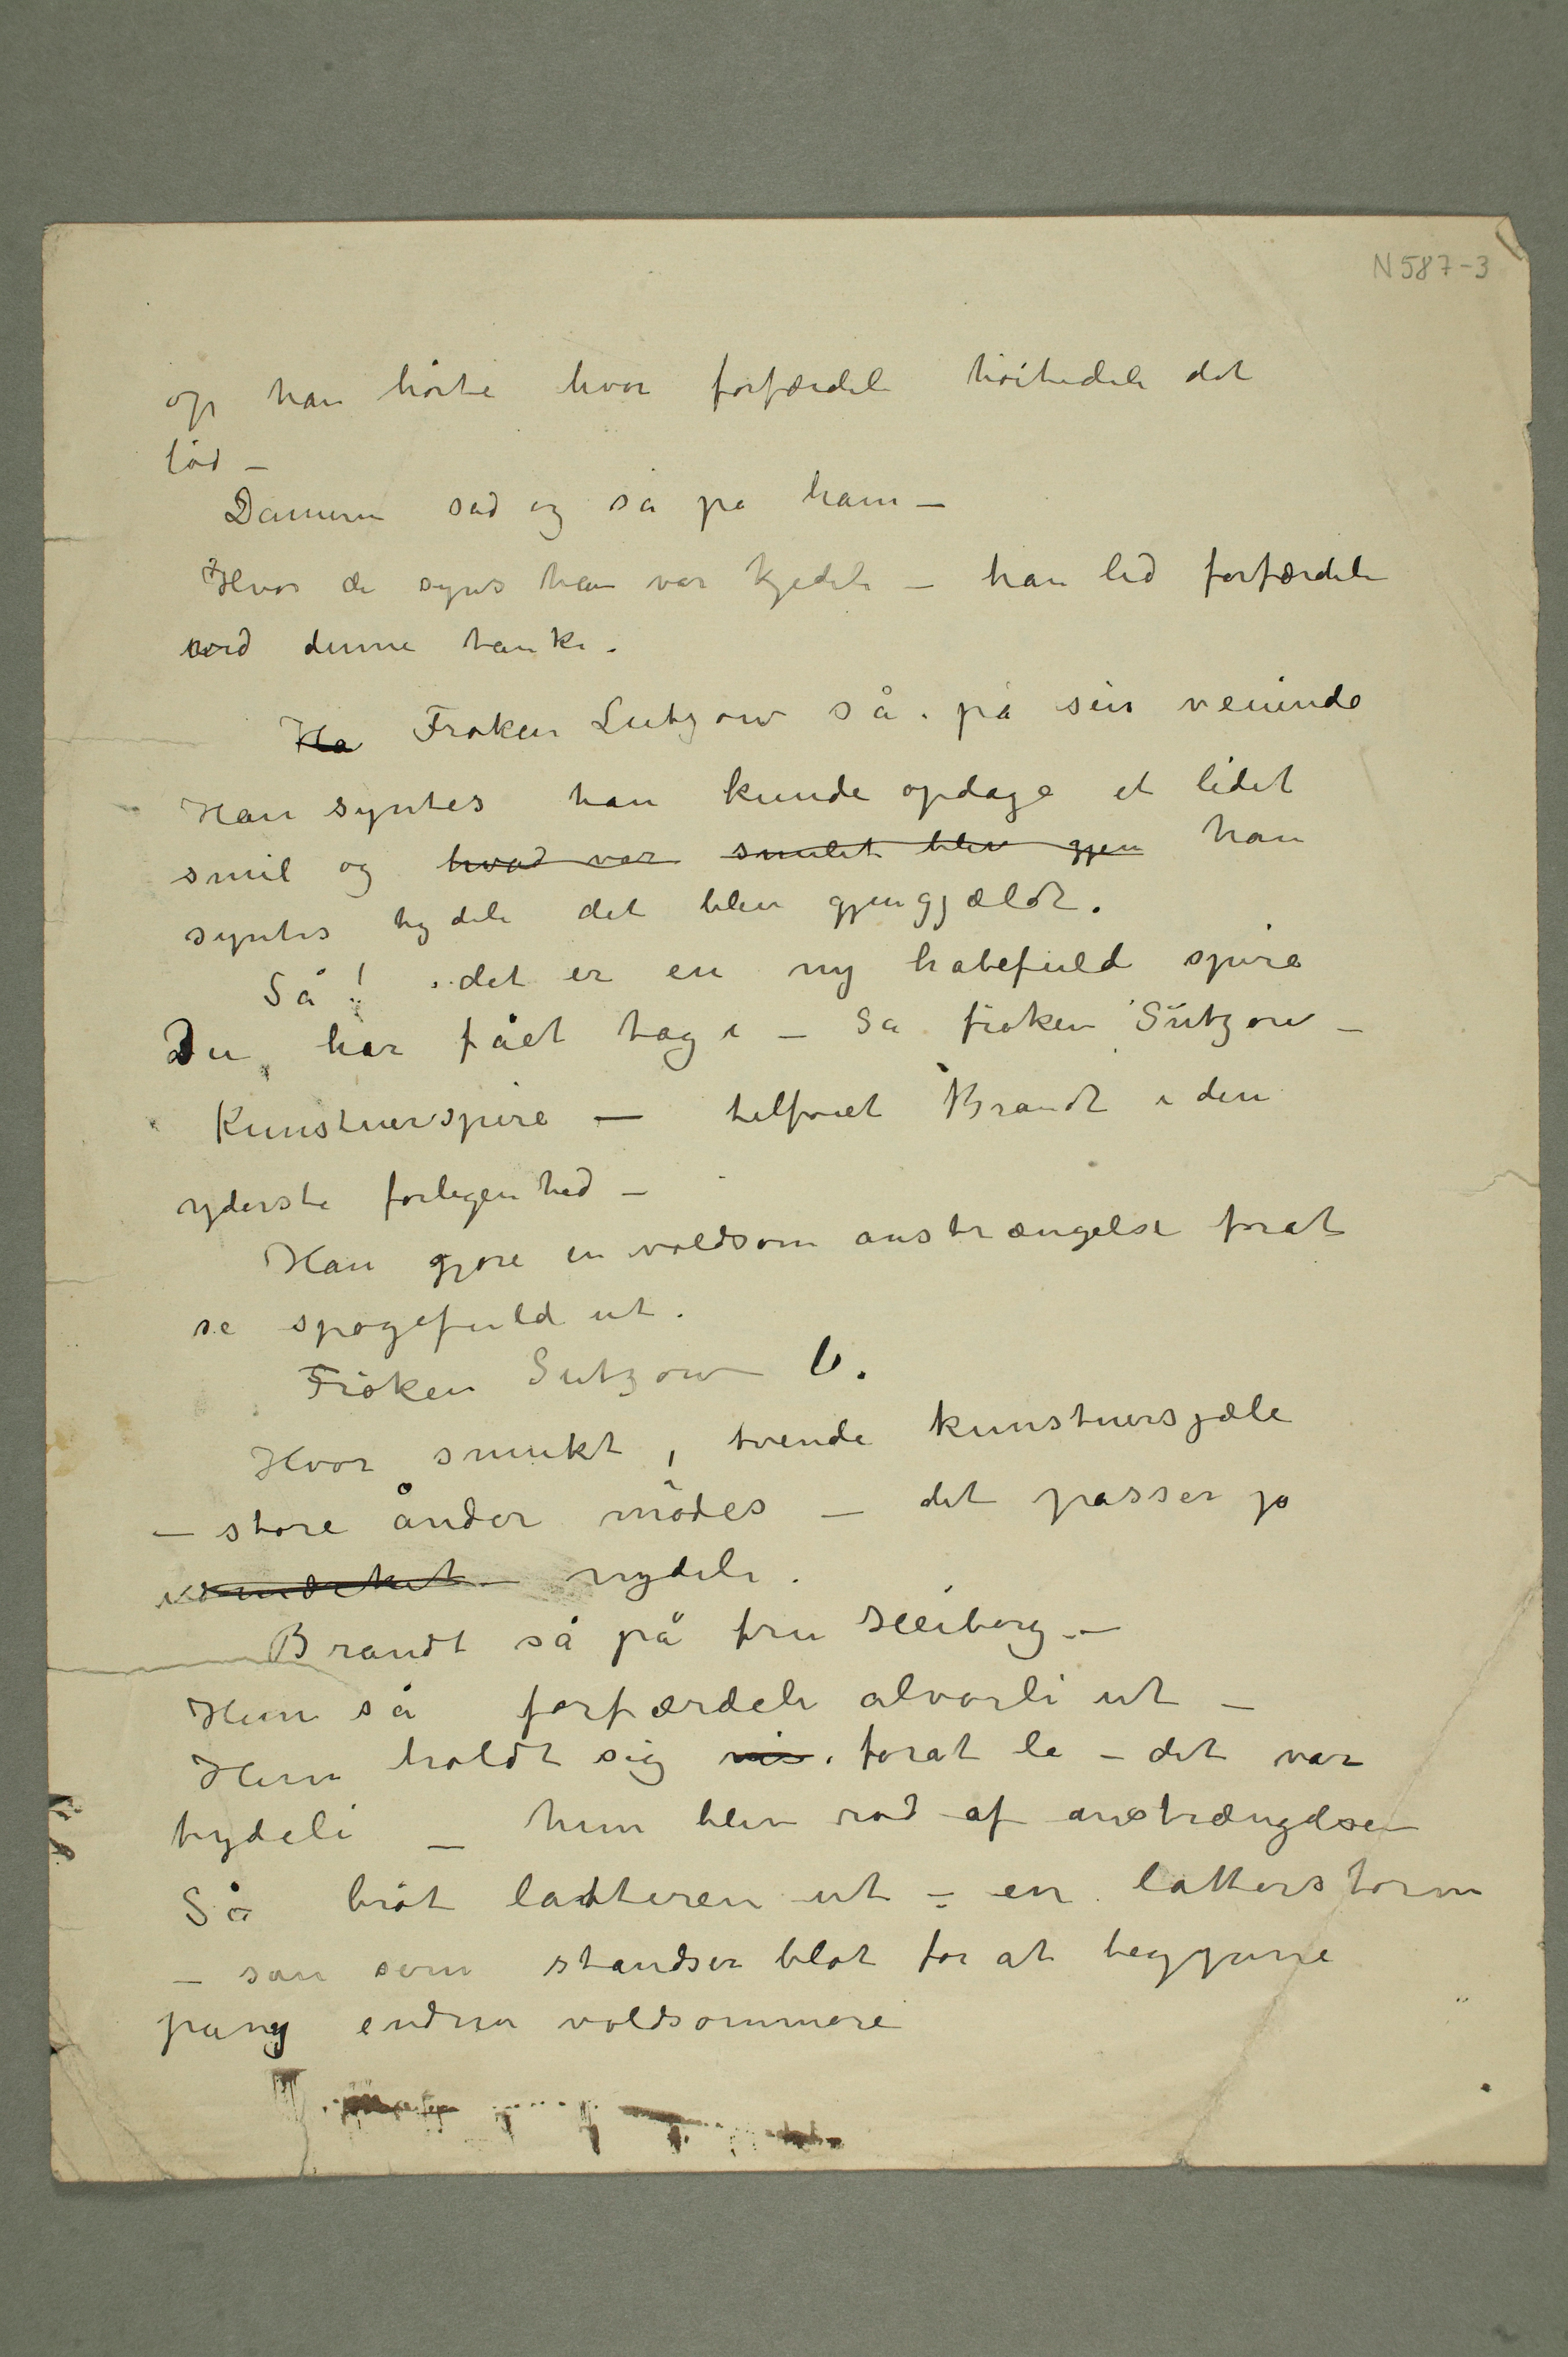 N 587-3
op han hörte hvor forfærdeli höitideli det
löd –
Damerne sad og så på ham –
Hvor de syns han var kjedeli – han led forfærdeli
ved denne tanke.
Ha Frøken Lutzow så på sin veninde
Han syntes han kunde opdage et lidet
smil og hvad var smilet blev gjen han
syntes tydeli det blev gjengjældt.
Så! det er en ny håbefuld spire
Du har fået tag i – Sa frøken Lützow –
Kunstnerspire – tilföiet Brandt i den
yderste forlegenhed –
Han gjore en voldsom anstrængelse forat
se spøgefuld ut.
Frøken Lutzow lo.
Hvor smukt, tvende kunstnersjæle
– store ånder mödes – det passer jo
udmærket nydeli.
Brandt så på fru Heiberg –
Hun så forfærdeli alvorli ut –
Hun holdt sig forat le – det var
tydeli – hun blev rød af anstrængelsen
Så brøt latteren ut – en latterstorm
– san som standser blot for at begynne
påny endnu voldsommere